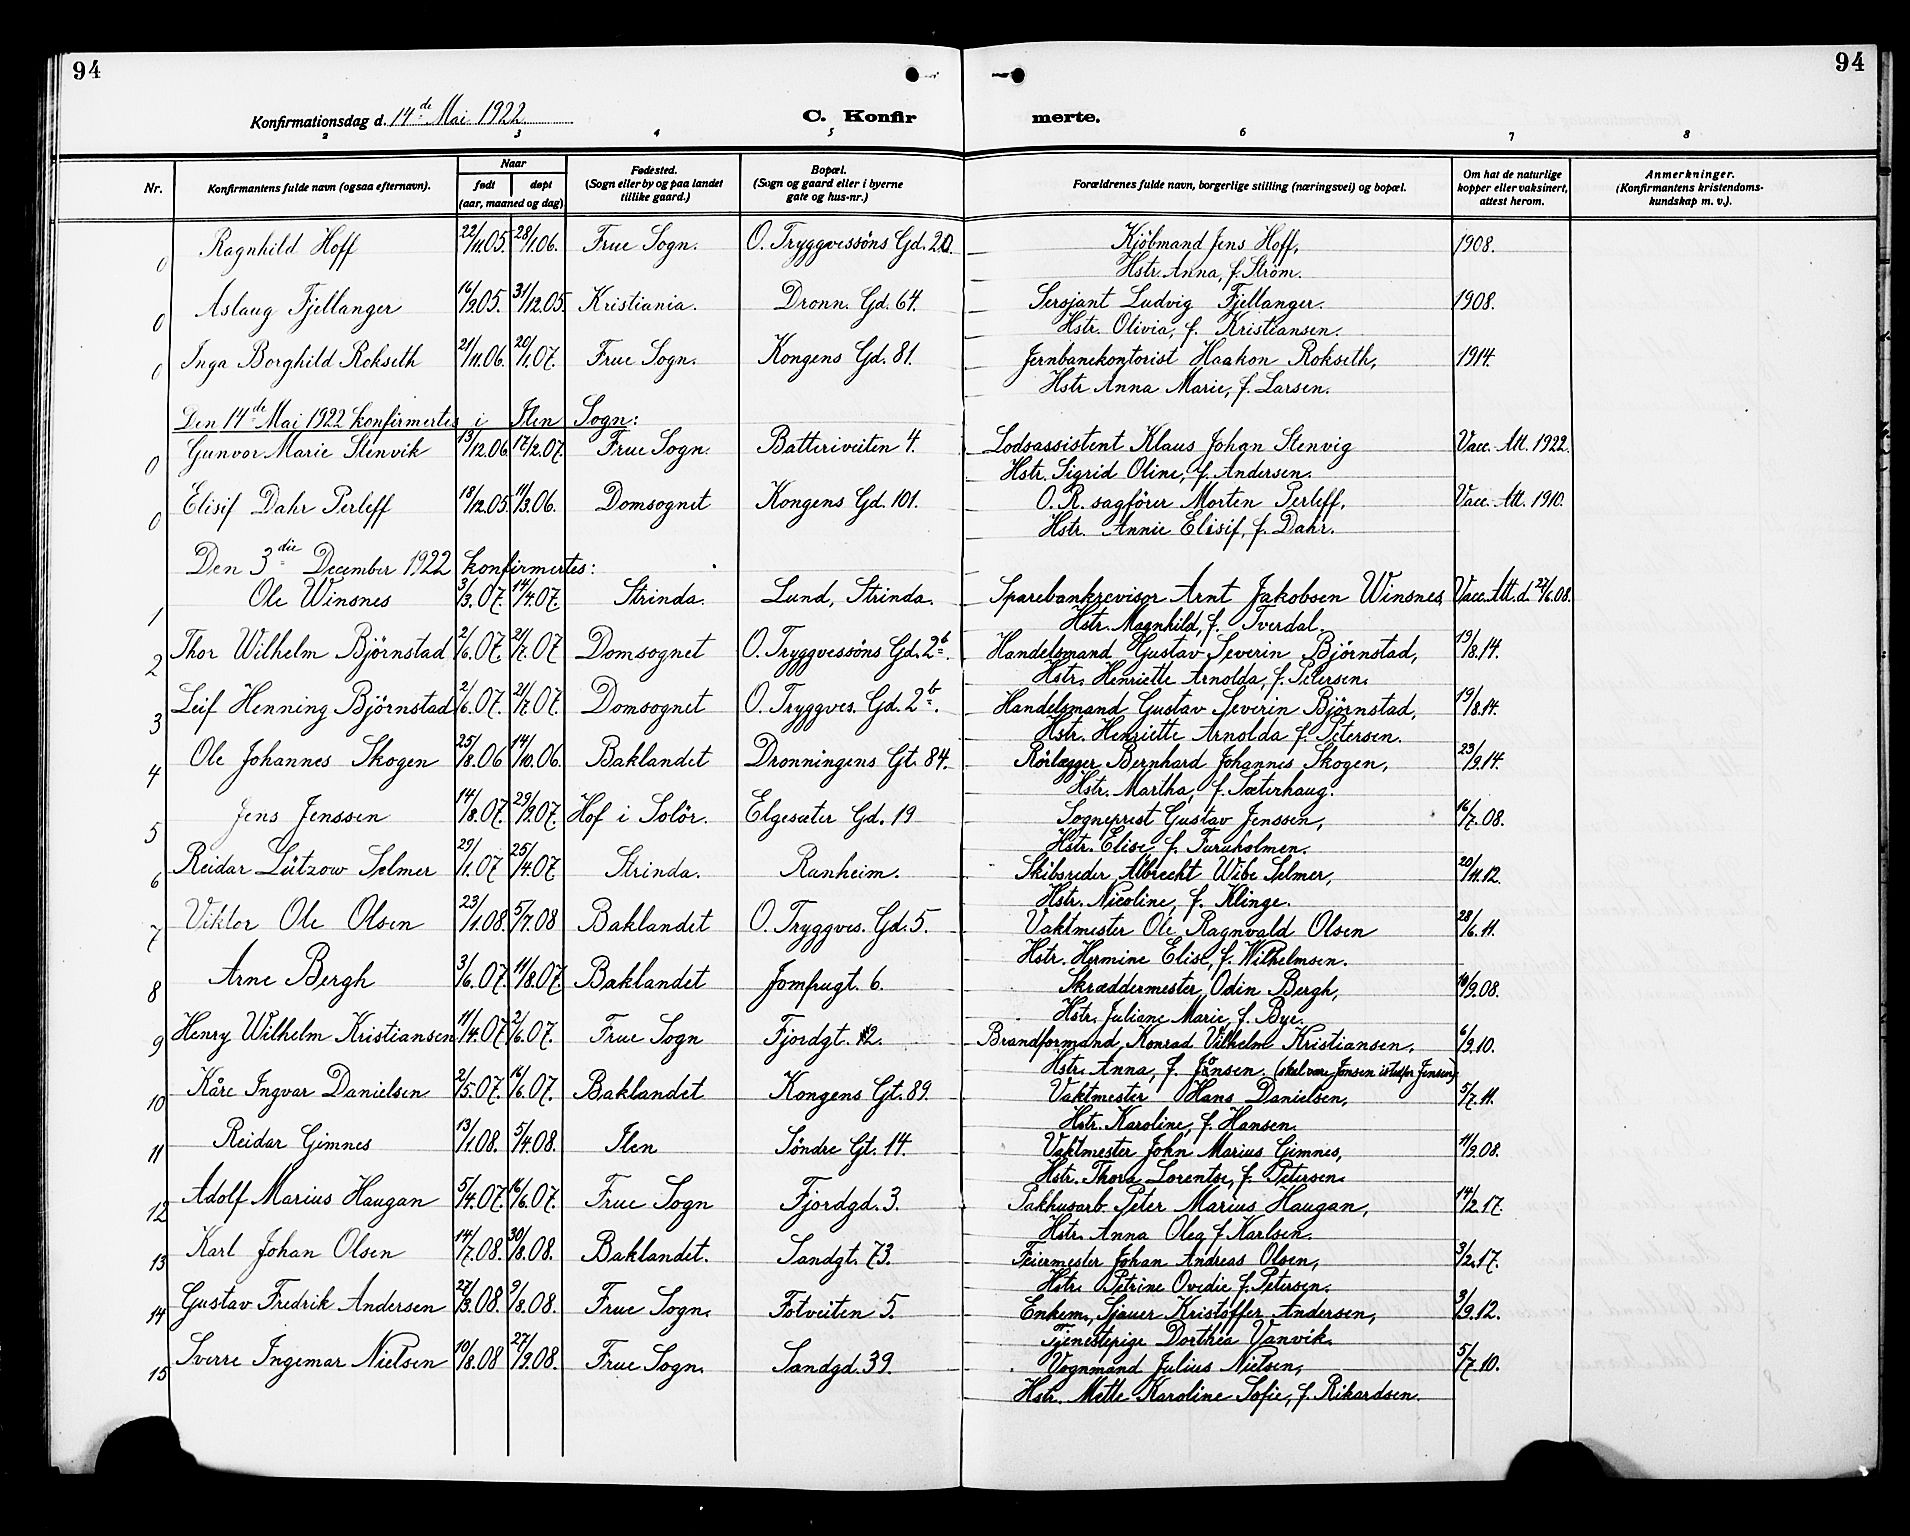 94
94
Konfirmationsdag d. 14de Mai 1922
C. Konfir
merte.
2 3 4 5 6 7 8
Nr. Konfirmantens fulde navn (ogsaa efternavn). Naar født døpt (aar, maaned og dag) Fødested. (Sogn eller by og paa landet tillike gaard.) Bopæl. (Sogn og gaard eller i byerne gate og hus-nr.) Forældrenes fulde navn, borgerlige stilling (næringsvei) og bopæl. Om hat de naturlige kopper eller vaksinert, attest herom. Anmerkninger. (Konfirmantens kristendoms-kundskap m. v.).
0 Ragnhild Hoff 22/11.05. 28/1.06. Frue Sogn. O. Tryggvessöns Gd. 20. Kjöbmand Jens Hoff, 1908.
Hstr. Anna, f. Ström.
0 Aslaug Fjellanger 16/9.05. 31/12.05. Kristiania. Dronn. Gd. 64. Sersjant Ludvig Fjellanger. 1908.
Hstr. Olivia, f. Kristiansen.
0 Inga Borghild Rokseth 21/11.06. 20/1.07. Frue Sogn. Kongens Gd. 81. Jernbanekontorist Haakon Rokseth, 1914.
Hstr. Anna Marie, f. Larsen.
Den 14de Mai 1922 konfirmertes i Ilen Sogn:
0 Gunvor Marie Stenvik 13/12.06. 17/2.07. Frue Sogn. Batteriveiten 4. Lodsassistent Klaus Johan Stenvig Vacc. Att. 1922.
Hstr. Sigrid Oline, f. Andersen.
0 Elisif Dahr Perleff 18/12.05. 11/3.06. Domsognet Kongens Gd. 101. O. R. sagförer Morten Perleff, Vacc. Att. 1910.
Hstr. Annie Elisif, f. Dahr.
Den 3die December 1922 konfirmertes:
1 Ole Winsnes 3/3.07. 14/4.07. Strinda. Lund, Strinda. Sparebankrevisor Arnt Jakobsen Winsnes, Vacc. Att. d. 27/6.08.
Hstr. Magnhild, f. Tverdal.
2 Thor Wilhelm Björnstad 2/6.07. 21/7.07 Domsognet O. Tryggvessöns Gd. 2b. Handelsmand Gustav Severin Björnstad, 19/8.14.
Hstr. Henriette Arnolda, f. Petersen.
3 Leif Henning Björnstad 2/6.07. 21/7.07. Domsognet O. Tryggves. Gd. 2b. Handelsmand Gustav Severin Björnstad, 19/8.14.
Hstr. Henriette Arnolda f. Petersen.
4 Ole Johannes Skogen 25/8.06 14/10.06. Baklandet Dronningens Gt. 84. Rörlægger Bernhard Johannes Skogen, 23/9.14.
Hstr. Martha, f. Sæterhaug.
5 Jens Jenssen 14/8.07. 29/9.07. Hof i Solör. Elgesæter Gd. 19 Sogneprest Gustav Jenssen, 16/7.08.
Hstr. Elise, f. Furuholmen.
6 Reidar Lützow Selmer 29/1.07 25/4.07 Strinda. Ranheim. Skibsreder, Albrecht Wibe Selmer, 20/11.12.
Hstr. Nicoline, f. Klinge.
7 Viktor Ole Olsen 23/1.08. 5/7.08 Baklandet O. Tryggves. Gd. 5. Vaktmester Ole Ragnvald Olsen 28/6.11.
Hstr. Hermine Elise, f. Wilhelmsen.
8 Arne Bergh 3/6.07. 11/8.07. Baklandet Jomfrugt. 6. Skræddermester, Odin Bergh, 10/9.08.
Hstr. Juliane Marie, f. Bye.
9 Henry Wilhelm Kristiansen 11/4.07. 2/6.07. Frue Sogn Fjordgt. 12. Brandformand, Konrad Vilhelm Kristiansen, 6/9.10.
Hstr. Anna, f. Jonsen. (skal være Jonsen istedfor Jensen)
10 Kåre Ingvar Danielsen 2/5.07. 16/6.07. Baklandet Kongens Gt. 89. Vaktmester Hans Danielsen, 5/7.11.
Hstr. Karoline, f. Hansen.
11 Reidar Gimnes 13/1.08. 5/4.08. Ilen Söndre Gt. 14. Vaktmester John Marius Gimnes, 11/9.08.
Hstr. Thora Lorentse, f. Petersen.
12 Adolf Marius Haugan 5/4.07. 16/6.07. Frue Sogn Fjordgd. 3. Pakhusarb. Peter Marius Haugan, 14/2.17.
Hstr. Anna Oleg f. Karlsen.
13 Karl Johan Olsen 14/7.08. 30/8.08. Baklandet. Sandgt. 73. Feiermester Johan Andreas Olsen, 3/2.17.
Hstr. Petrine Ovedie f. Petersen.
14 Gustav Fredrik Andersen 27/3.08. 9/8.08. Frue Sogn. Fotveiten 5. Enkem., Sjauer Kristoffer Andersen, 3/9.12.
Tjenestepige Dorthea Vanvik.
15 Sverre Ingemar Nielsen 10/8.08 27/9.08. Frue Sogn. Sandgd. 39. Vognmand Julius Nielsen, 5/7.10.
Hstr. Mette Karoline Sofie, f. Rikardsen.